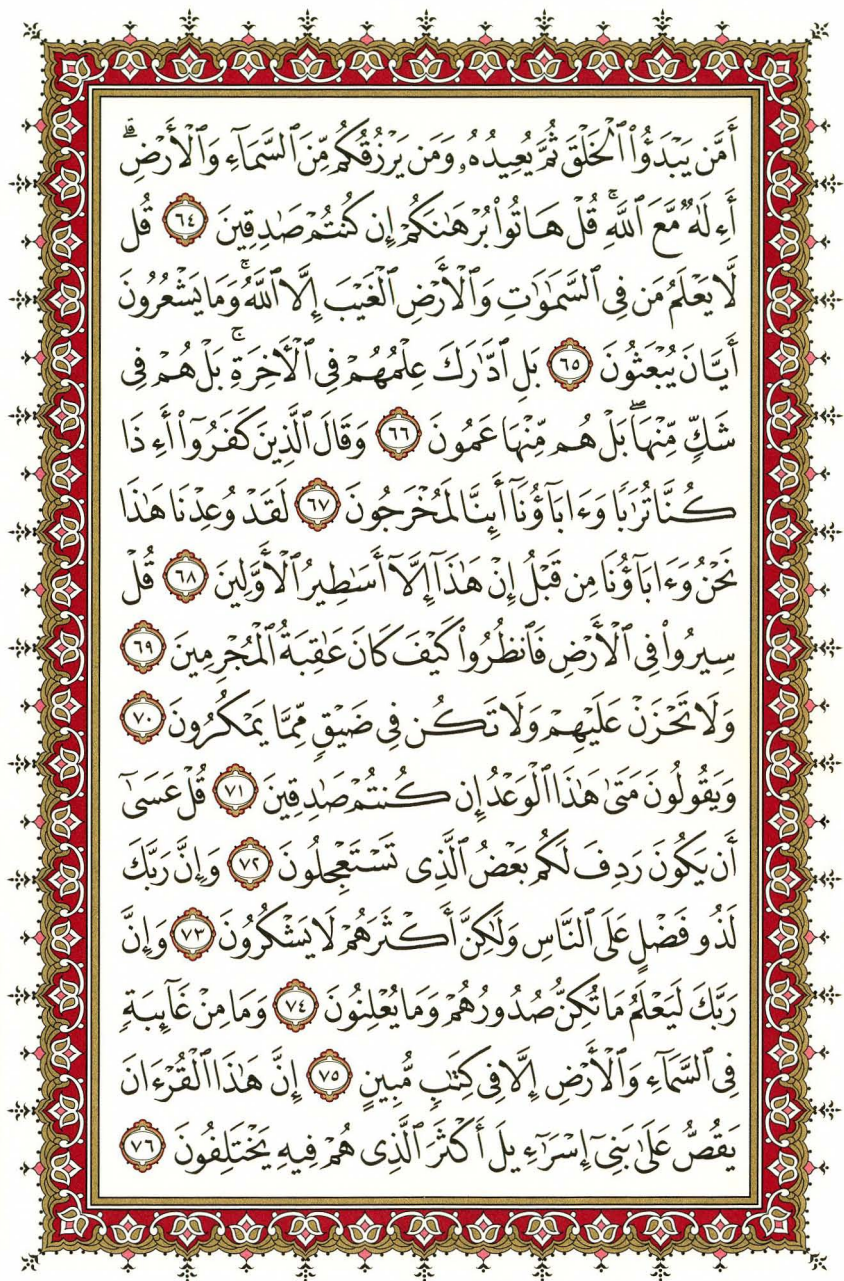 أَمَّن يَبْدَؤُا۟ ٱلْخَلْقَ ثُمَّ يُعِيدُهُۥ وَمَن يَرْزُقُكُم مِّنَ ٱلسَّمَآءِ وَٱلْأَرْضِ ۗ
أَءِلَـٰهٌ مَّعَ ٱللَّهِ ۚ قُلْ هَاتُوا۟ بُرْهَـٰنَكُمْ إِن كُنتُمْ صَـٰدِقِينَ ٦٤ قُل
لَّا يَعْلَمُ مَن فِى ٱلسَّمَـٰوَٰتِ وَٱلْأَرْضِ ٱلْغَيْبَ إِلَّا ٱللَّهُ ۚ وَمَا يَشْعُرُونَ
أَيَّانَ يُبْعَثُونَ ٦٥ بَلِ ٱدَّٰرَكَ عِلْمُهُمْ فِى ٱلْـَٔاخِرَةِ ۚ بَلْ هُمْ فِى
شَكٍّ مِّنْهَا ۖ بَلْ هُم مِّنْهَا عَمُونَ ٦٦ وَقَالَ ٱلَّذِينَ كَفَرُوٓا۟ أَءِذَا
كُنَّا تُرَٰبًا وَءَابَآؤُنَآ أَئِنَّا لَمُخْرَجُونَ ٦٧ لَقَدْ وُعِدْنَا هَـٰذَا
نَحْنُ وَءَابَآؤُنَا مِن قَبْلُ إِنْ هَـٰذَآ إِلَّآ أَسَـٰطِيرُ ٱلْأَوَّلِينَ ٦٨ قُلْ
سِيرُوا۟ فِى ٱلْأَرْضِ فَٱنظُرُوا۟ كَيْفَ كَانَ عَـٰقِبَةُ ٱلْمُجْرِمِينَ ٦٩
وَلَا تَحْزَنْ عَلَيْهِمْ وَلَا تَكُن فِى ضَيْقٍ مِّمَّا يَمْكُرُونَ ٧٠
وَيَقُولُونَ مَتَىٰ هَـٰذَا ٱلْوَعْدُ إِن كُنتُمْ صَـٰدِقِينَ ٧١ قُلْ عَسَىٰٓ
أَن يَكُونَ رَدِفَ لَكُم بَعْضُ ٱلَّذِى تَسْتَعْجِلُونَ ٧٢ وَإِنَّ رَبَّكَ
لَذُو فَضْلٍ عَلَى ٱلنَّاسِ وَلَـٰكِنَّ أَكْثَرَهُمْ لَا يَشْكُرُونَ ٧٣ وَإِنَّ
رَبَّكَ لَيَعْلَمُ مَا تُكِنُّ صُدُورُهُمْ وَمَا يُعْلِنُونَ ٧٤ وَمَا مِنْ غَآئِبَةٍ
فِى ٱلسَّمَآءِ وَٱلْأَرْضِ إِلَّا فِى كِتَـٰبٍ مُّبِينٍ ٧٥ إِنَّ هَـٰذَا ٱلْقُرْءَانَ
يَقُصُّ عَلَىٰ بَنِىٓ إِسْرَٰٓءِيلَ أَكْثَرَ ٱلَّذِى هُمْ فِيهِ يَخْتَلِفُونَ ٧٦